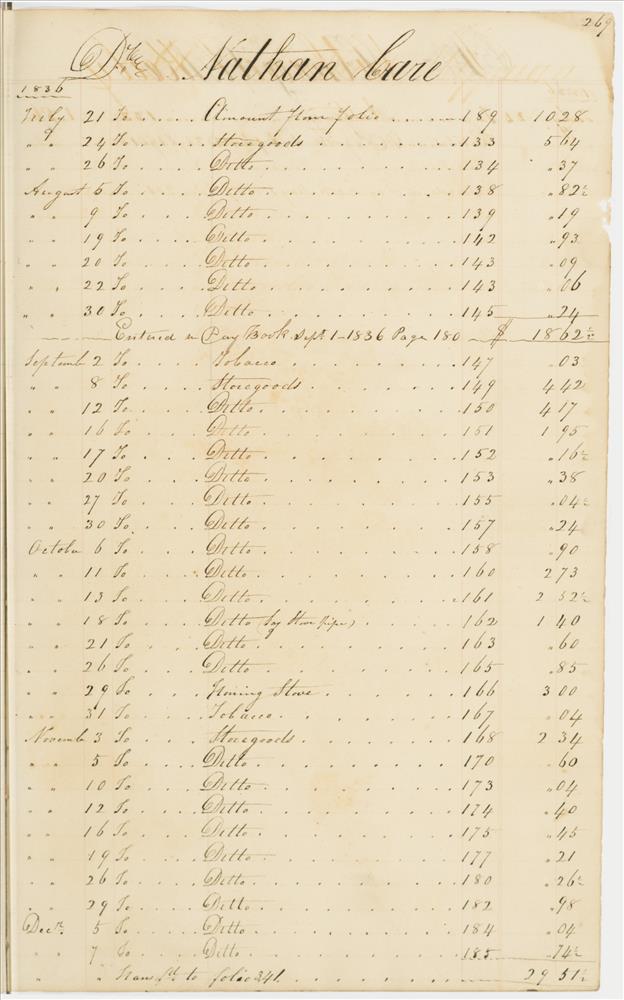 269
Dr. Nathan Care
1836
July 21 To . . . . Amount from folio . . . . . 189 10 28
" " 24 To . . . . Storegoods . . . . . . . 133 5 64
" " 26 To . . . . Ditto . . . . . . . . 134 " 37
August 5 To . . . . Ditto . . . . . . . . 138 " 82½
" " 9 To . . . . Ditto . . . . . . . . 139 " 19
" " 19 To . . . . Ditto . . . . . . . . 142 " 93
" " 20 To . . . . Ditto . . . . . . . . 143 " 09
" " 22 To . . . . Ditto . . . . . . . . 143 " 06
" " 30 To . . . . Ditto . . . . . . . . 145 " 24
Entered in Day Book Sept 1 - 1836 Page 180 $ 18 62½
September 2 To . . . . Tobacco . . . . . . . 147 " 03
" " 8 To . . . . Storegoods . . . . . . 149 4 42
" " 12 To . . . . Ditto . . . . . . . . 150 4 17
" " 16 To . . . . Ditto . . . . . . . . 151 1 95
" " 17 To . . . . Ditto . . . . . . . . 152 " 16½
" " 20 To . . . . Ditto . . . . . . . . 153 " 38
" " 27 To . . . . Ditto . . . . . . . . 155 " 04½
" " 30 To . . . . Ditto . . . . . . . . 157 " 24
October 6 To . . . . Ditto . . . . . . . . 158 " 90
" " 11 To . . . . Ditto . . . . . . . . 160 2 73
" " 13 To . . . . Ditto . . . . . . . . 161 2 52½
" " 18 To . . . . Ditto (by Stove pipe) . . . . 162 1 40
" " 21 To . . . . Ditto . . . . . . . . 163 " 60
" " 26 To . . . . Ditto . . . . . . . . 165 " 85
" " 29 To . . . . Stove . . . . . 166 3 00
" " 31 To . . . . Tobacco . . . . . . 167 " 04
November 3 To . . . . Storegoods . . . . . . 168 2 34
" " 5 To . . . . Ditto . . . . . . . . 170 " 60
" " 10 To . . . . Ditto . . . . . . . . 173 " 04
" " 12 To . . . . Ditto . . . . . . . . 174 " 40
" " 16 To . . . . Ditto . . . . . . . . 175 " 45
" " 19 To . . . . Ditto . . . . . . . . 177 " 21
" " 26 To . . . . Ditto . . . . . . . . 180 " 26½
" " 29 To . . . . Ditto . . . . . . . . 182 " 98
Decr. 5 To . . . . Ditto . . . . . . . . 184 " 04
" " 7 To . . . . Ditto . . . . . . . . 185 " 74½
" " Transfd. to folio 341 . . . . . . . . 29 51½